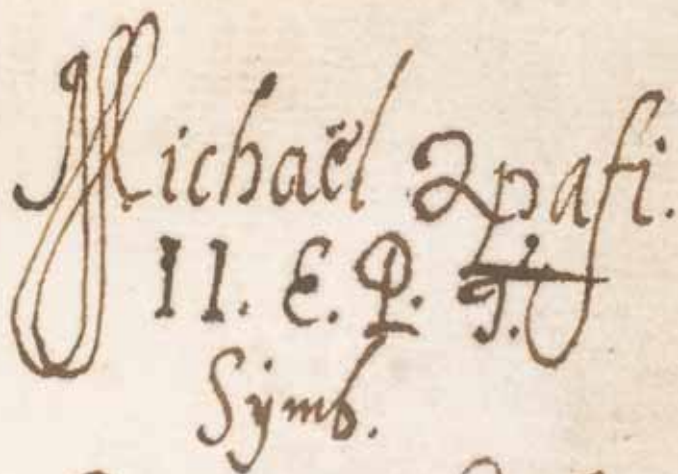 Michaël Apafi.
II. E. P. T.
Symb.